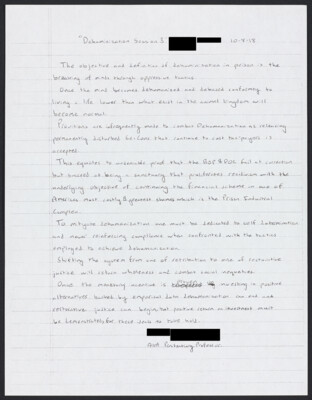 "Dehumanization Session I 10-8-18
The objective and definition of dehumanization in prison is the
breaking of minds through oppressive tactics.
Once the mind becomes dehumanized and detached conforming to
living a life lower than what exist in the animal kingdom will
become normal.
Practices are adequately made to combat Dehumanization as
permanently disturbed be-cause that continue to cost tax-payers is
accepted.
This equates to irrefutable proof that the GDC & DOC fail at correction
but succeed at being a sanctuary that proliferates recidivism with the
underlying objective of continuing the financial scheme in one of
America's most costly & greatest shames which is the Prison Industrial
Complex.
To mitigate dehumanization one must be dedicated to self determination
and never rendering compliance when confronted with the tactics
employed to achieve dehumanization.
Shifting the system from one of retribution to one of restorative
justice will return wholeness and combat racial
Once the marketing machine is investing in positive
alternatives backed by empirical data dehumanization can end and
restorative justice can begin, but positive return on investment must
be demonstrated for these seeds to take hold.